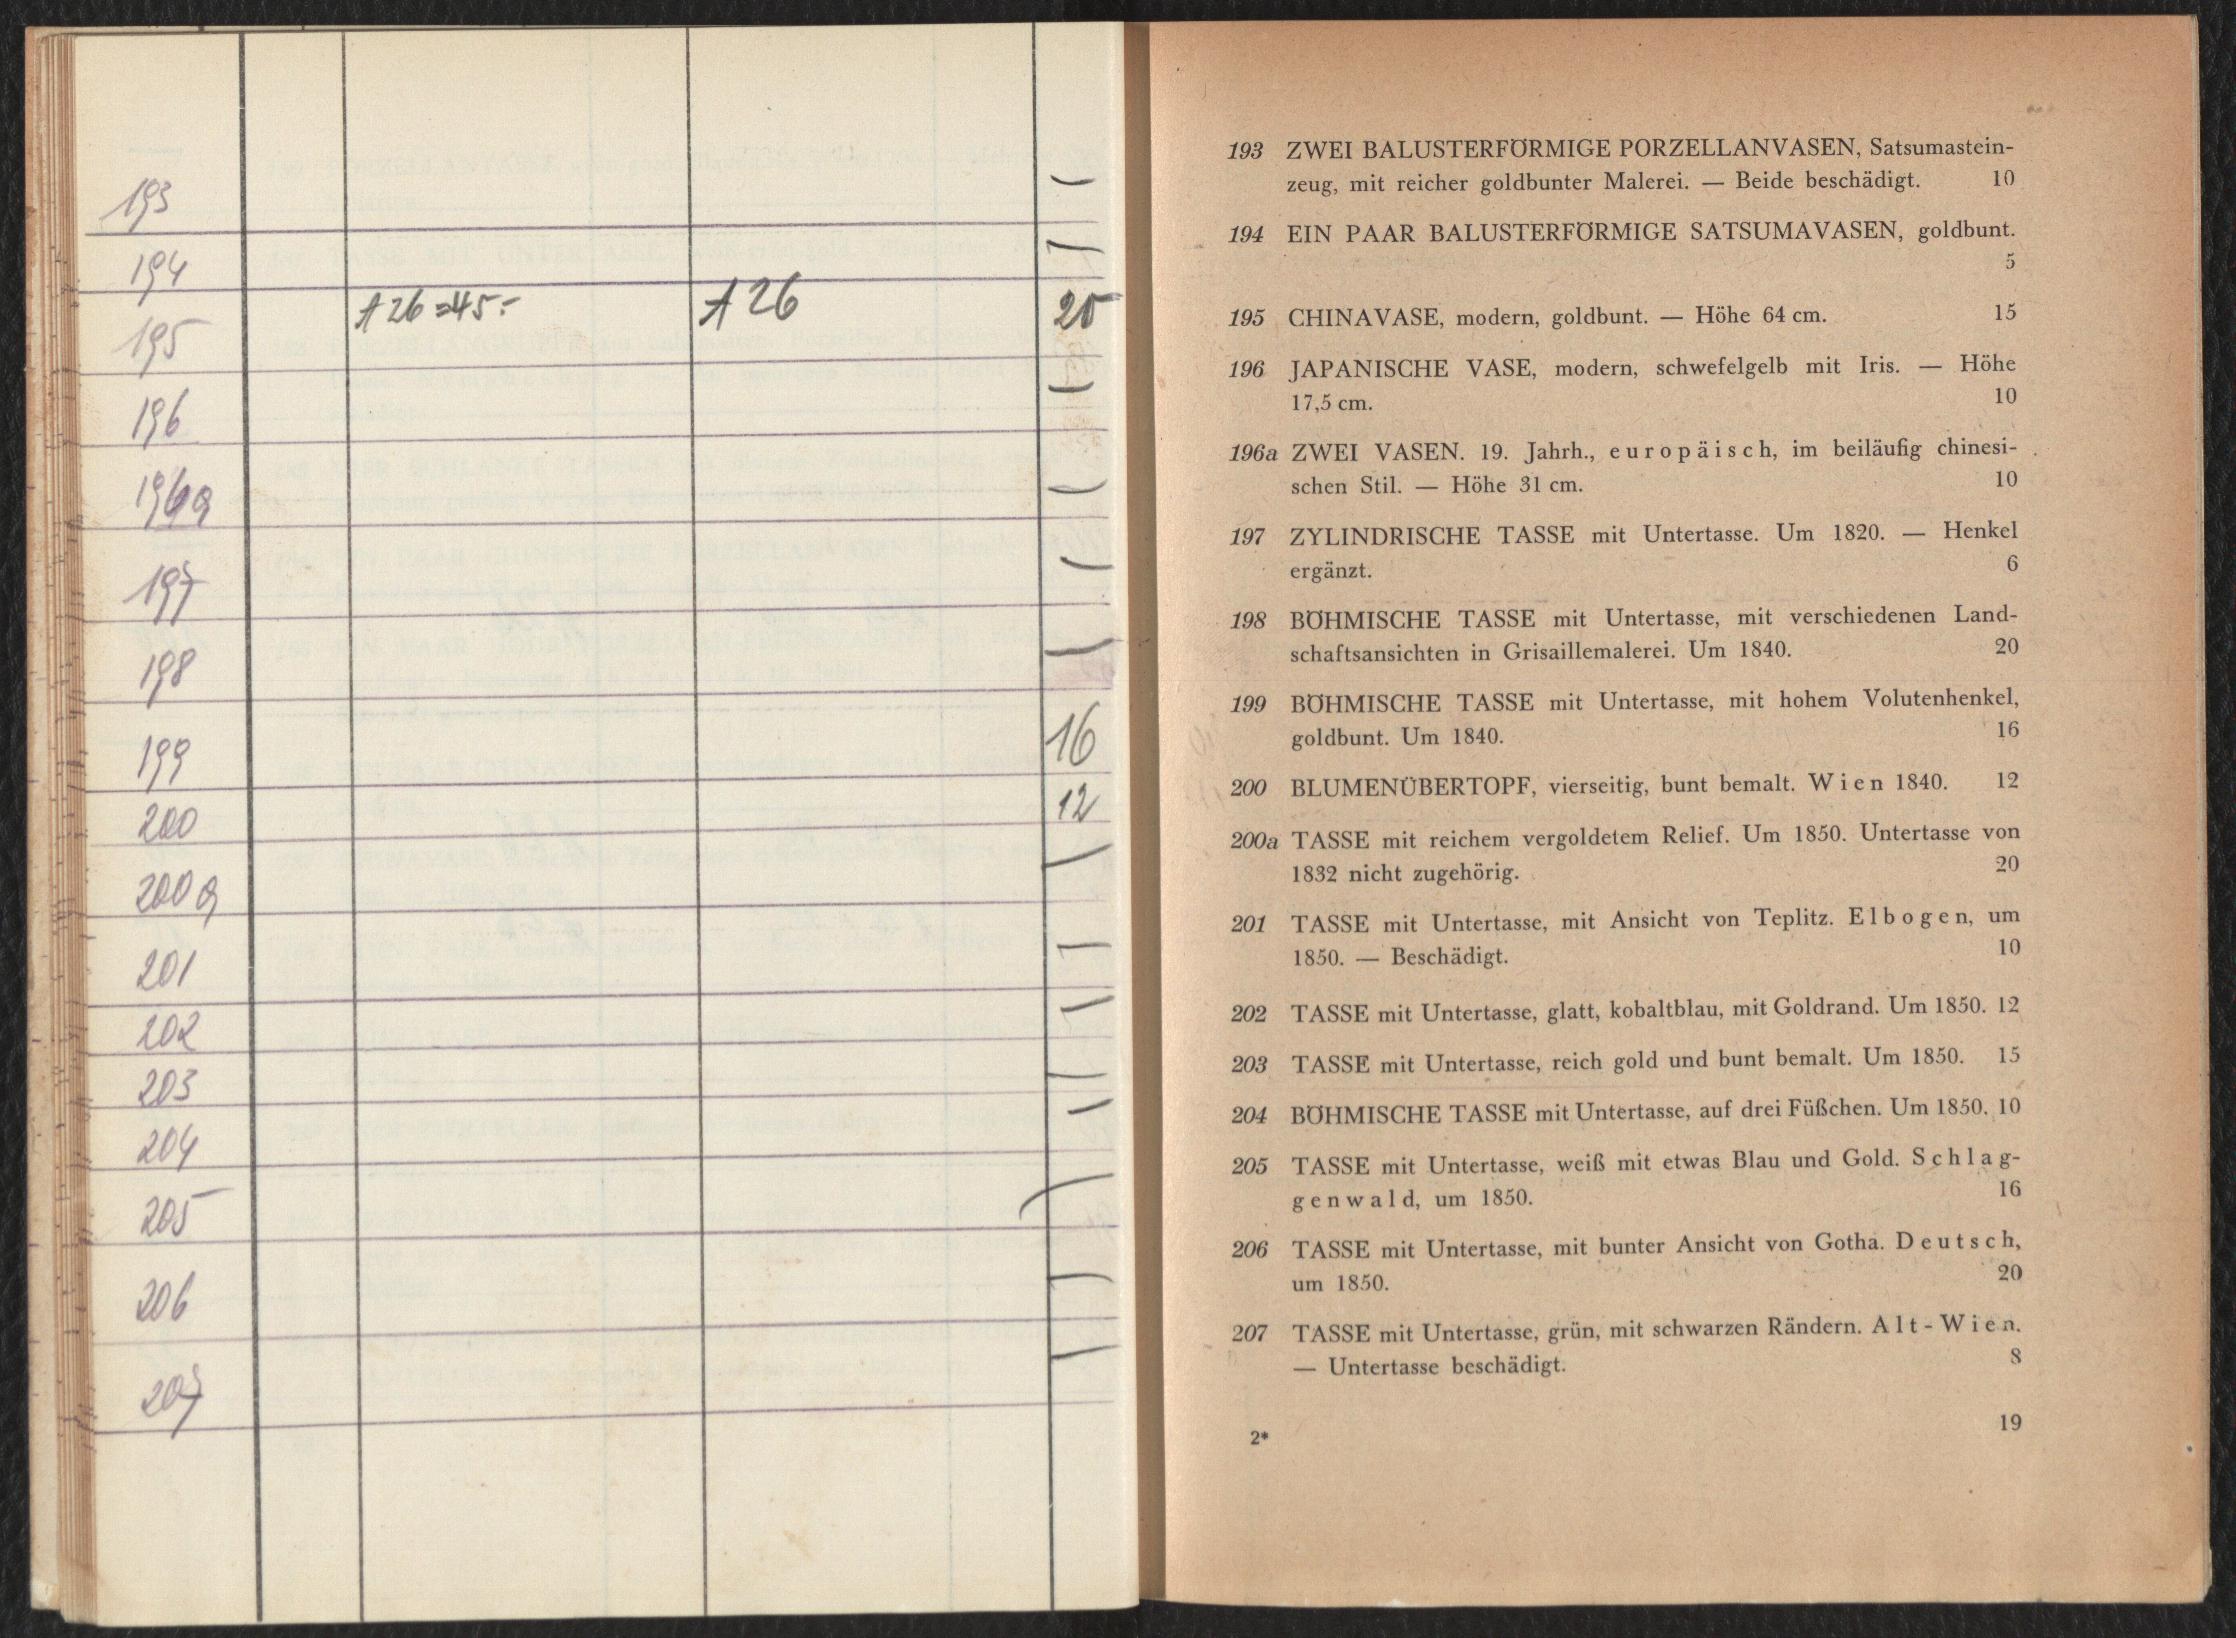 193
194
A 26 = 45.- A 26 20
195
196
196a
197
198
199 16
200 12
200 a
201
202
203
204
205
206
207
193 ZWEI BALUSTERFÖRMIGE PORZELLANVASEN, Satsumastein-
zeug, mit reicher goldbunter Malerei. — Beide beschädigt. 10
194 EIN PAAR BALUSTERFÖRMIGE SATSUMAVASEN, goldbunt.
5
195 CHINAVASE, modern, goldbunt. — Höhe 64 cm. 15
196 JAPANISCHE VASE, modern, schwefelgelb mit Iris. — Höhe
17,5 cm. 10
196a ZWEI VASEN. 19. Jahrh., europäisch, im beiläufig chinesi-
schen Stil. — Höhe 31 cm. 10
197 ZYLINDRISCHE TASSE mit Untertasse. Um 1820. — Henkel
ergänzt. 6
198 BÖHMISCHE TASSE mit Untertasse, mit verschiedenen Land-
schaftsansichten in Grisaillemalerei. Um 1840. 20
199 BÖHMISCHE TASSE mit Untertasse, mit hohem Volutenhenkel,
goldbunt. Um 1840. 16
200 BLUMENÜBERTOPF, vierseitig, bunt bemalt. Wien 1840. 12
200a TASSE mit reichem vergoldetem Relief. Um 1850. Untertasse von
1832 nicht zugehörig. 20
201 TASSE mit Untertasse, mit Ansicht von Teplitz. Elbogen, um
1850. — Beschädigt. 10
202 TASSE mit Untertasse, glatt, kobaltblau, mit Goldrand. Um 1850. 12
203 TASSE mit Untertasse, reich gold und bunt bemalt. Um 1850. 15
204 BÖHMISCHE TASSE mit Untertasse, auf drei Füßchen. Um 1850. 10
205 TASSE mit Untertasse, weiß mit etwas Blau und Gold. Schlag-
genwald, um 1850. 16
206 TASSE mit Untertasse, mit bunter Ansicht von Gotha. Deutsch,
um 1850. 20
207 TASSE mit Untertasse, grün, mit schwarzen Rändern. Alt-Wien.
— Untertasse beschädigt. 8
2* 19